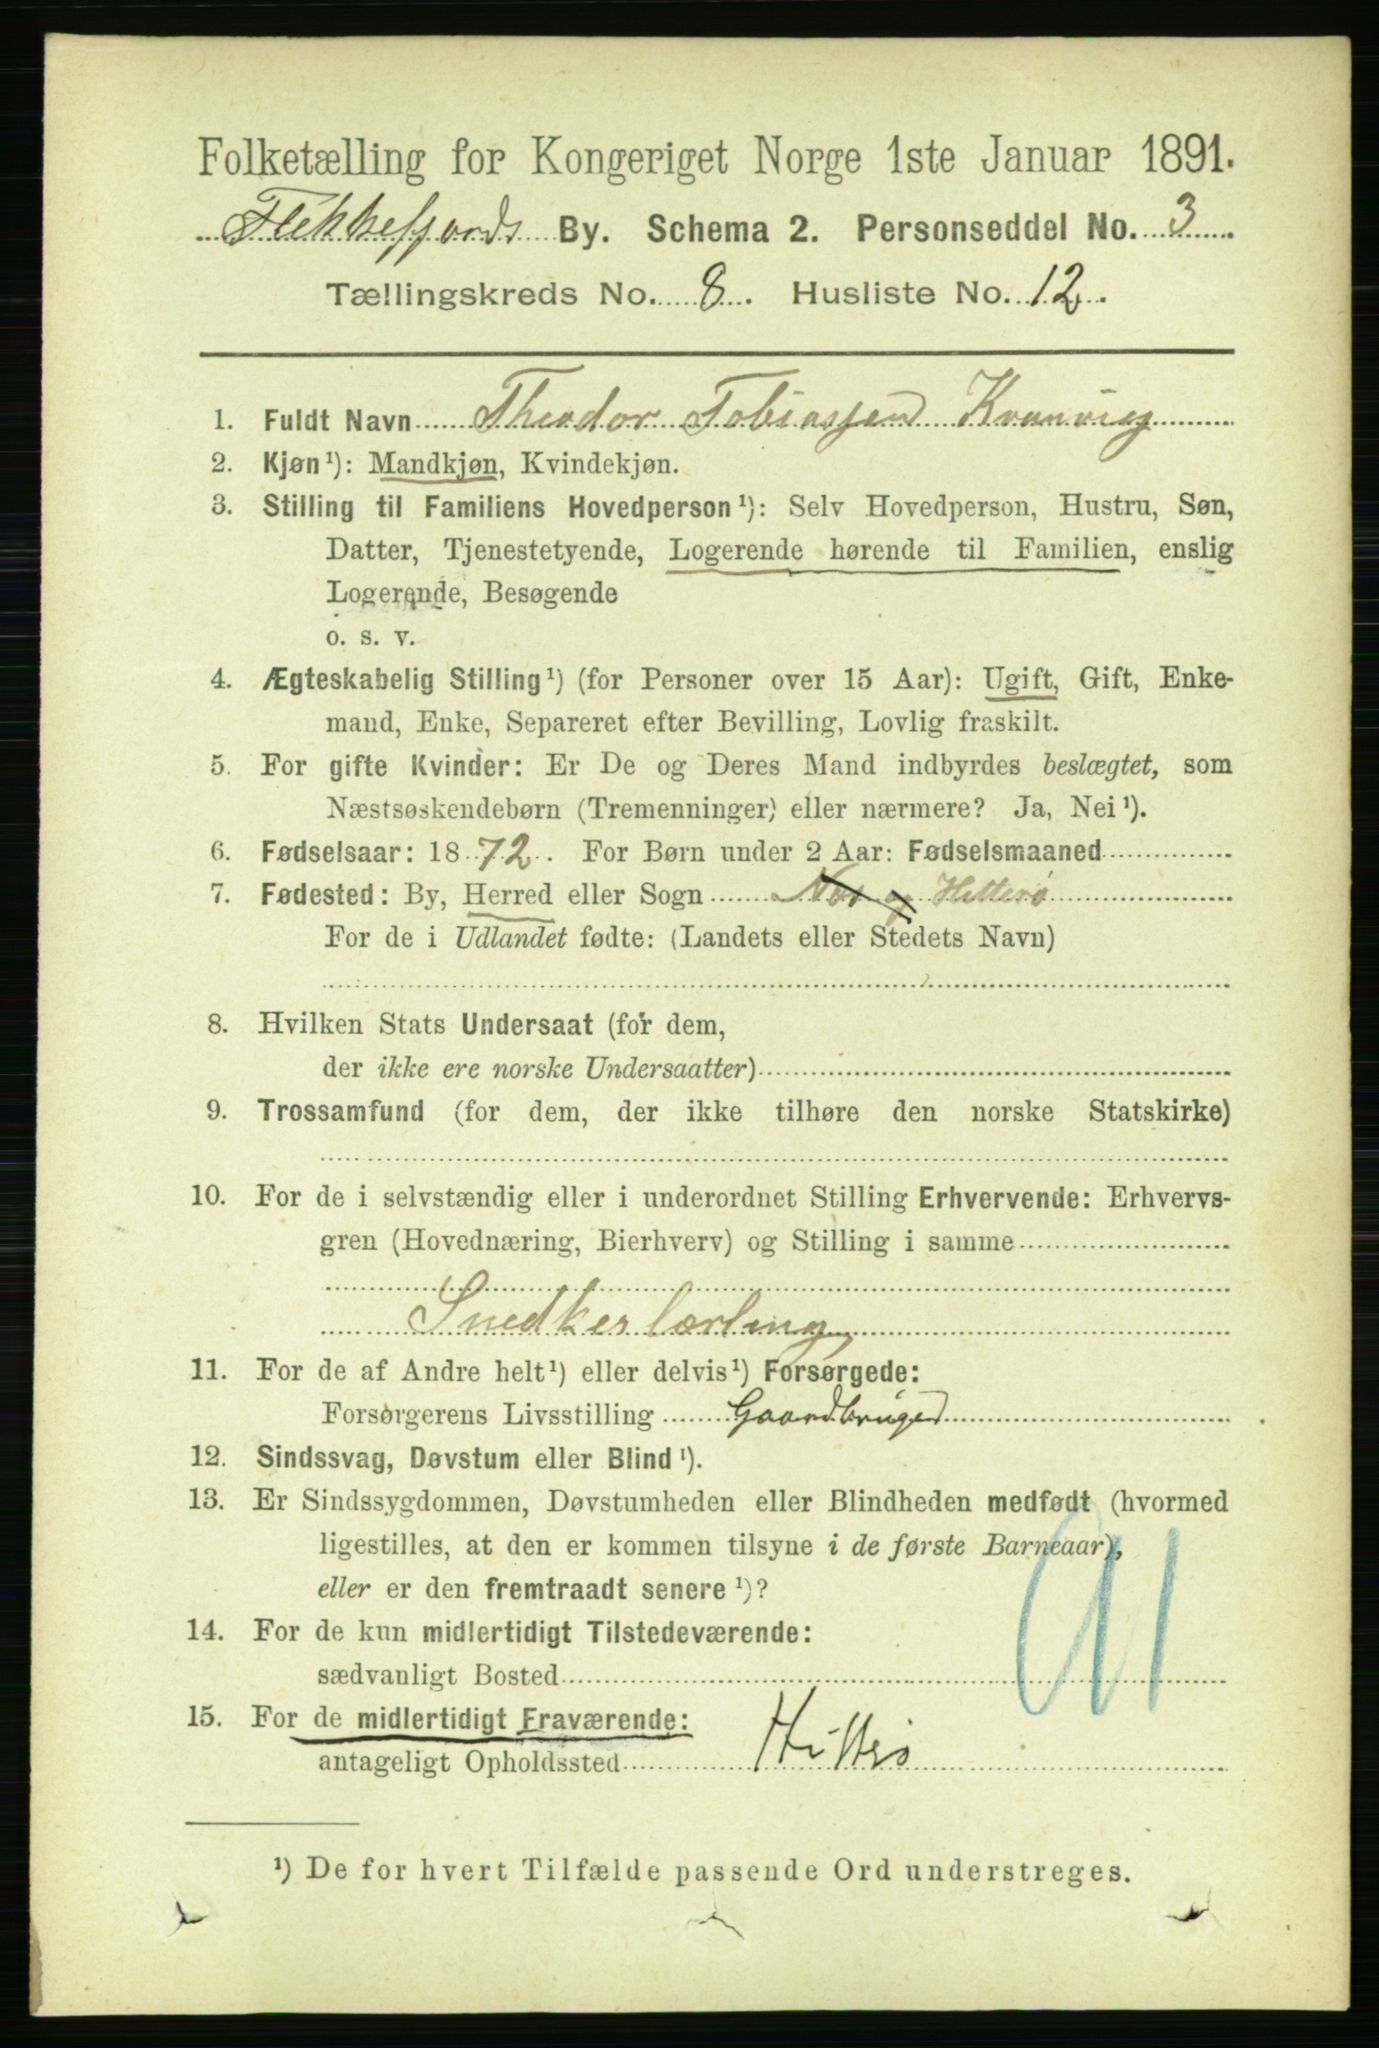 Folketælling for Kongeriget Norge 1ste Januar 1891.
Flekkefjords By. Schema 2. Personseddel No. 3
Tællingskreds No. 8. Husliste No. 12.
1. Fuldt Navn Theodor Tobiassen Kvanvig
2. Kjøn¹): Mandkjøn, Kvindekjøn.
3. Stilling til Familiens Hovedperson¹): Selv Hovedperson, Hustru, Søn,
Datter, Tjenestetyende, Logerende hørende til Familien, enslig
Logerende, Besøgende
o. s. v.
4. Ægteskabelig Stilling¹) (for Personer over 15 Aar): Ugift, Gift, Enke-
mand, Enke, Separeret efter Bevilling, Lovlig fraskilt.
5. For gifte Kvinder: Er De og Deres Mand indbyrdes beslægtet, som
Næstsøskendebørn (Tremenninger) eller nærmere? Ja, Nei¹).
6. Fødselsaar: 1872. For Børn under 2 Aar: Fødselsmaaned
7. Fødested: By, Herred eller Sogn Nes og Hitterø
For de i Udlandet fødte: (Landets eller Stedets Navn)
8. Hvilken Stats Undersaat (for dem,
der ikke ere norske Undersaatter)
9. Trossamfund (for dem, der ikke tilhøre den norske Statskirke)
10. For de i selvstændig eller i underordnet Stilling Erhvervende: Erhvervs-
gren (Hovednæring, Bierhverv) og Stilling i samme
Snedkerlærling
11. For de af Andre helt¹) eller delvis¹) Forsørgede:
Forsørgerens Livsstilling Gaardbruger
12. Sindssvag, Døvstum eller Blind¹).
13. Er Sindssygdommen, Døvstumheden eller Blindheden medfødt (hvormed
ligestilles, at den er kommen tilsyne i de første Barneaar),
eller er den fremtraadt senere¹)?
14. For de kun midlertidigt Tilstedeværende:
sædvanligt Bosted
15. For de midlertidigt Fraværende:
antageligt Opholdssted Hitterø
¹) De for hvert Tilfælde passende Ord understreges.